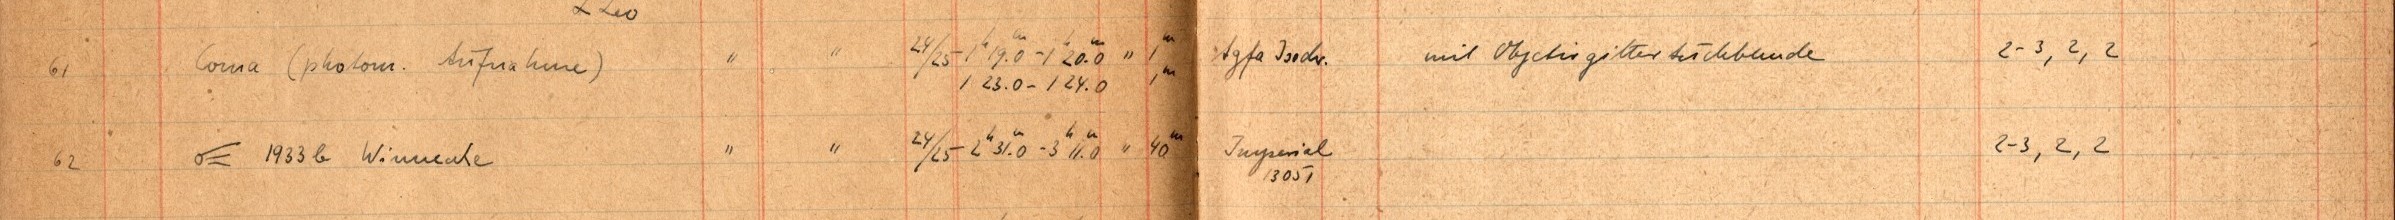 α Leo
61 Coma (photom. Aufnahme) " " 24/25 - 1h 19.m0 - 1h 20.m0 " 1m Agfa Isodr. mit Objectivgitter 2-3, 2, 2
1 23.0 - 1 24.0 1m
62 ☄ 1933 b Winnecke " " 24/25 - 2h 31.m0 - 3h 11.m0 " 40m Imperial 2-3, 2, 2
13051